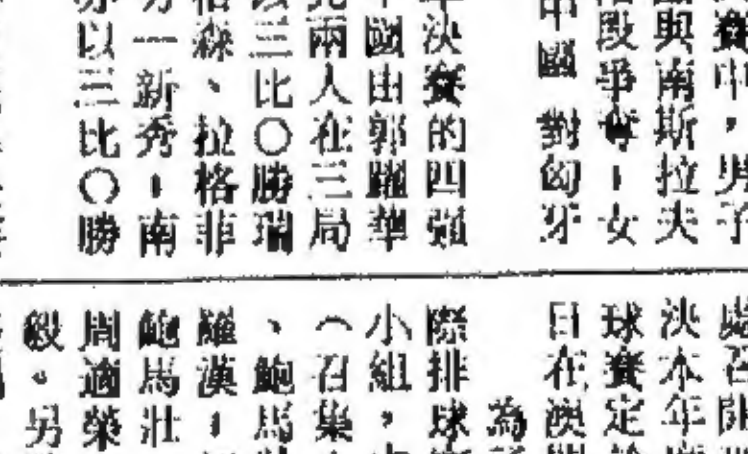 賽中，男子
與南斯拉夫
段爭奪，女
中國對匈牙
決賽的四強
國由郭躍華
兩人在三局
三比〇勝瑞
森、拉格菲
一新秀，南
以三比〇勝
處召開
決本年度
球賽定於
日在澳門
為
際排球
小組，
（召集
、鮑馬壯
羅漢，
鮑馬壯
周適榮
毅。另